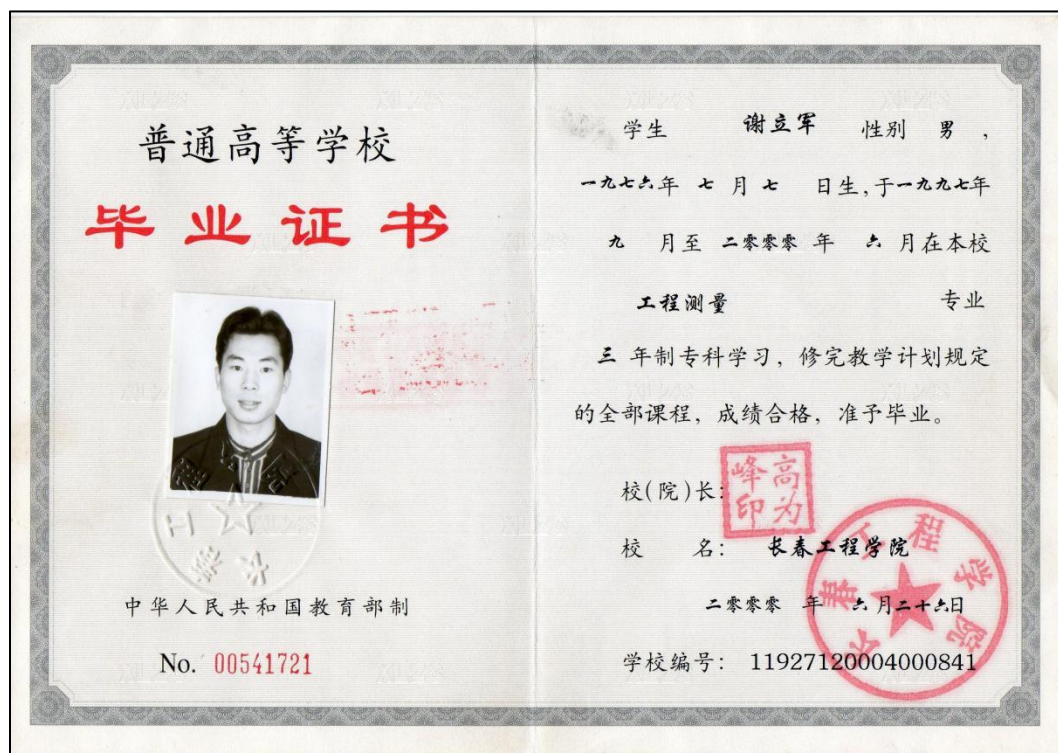 普通高等学校
毕业证书
中华人民共和国教育部制
No. 00541721
学生 谢立军 性别 男,
一九七六年 七 月 七 日生,于一九九七年
九 月至 二零零零 年 六 月在本校
工程测量 专业
三 年制专科学习，修完教学计划规定
的全部课程，成绩合格，准予毕业。
校(院)长:
高为峰印
校 名: 长春工程学院
二零零零 年 六月二十六日
长春工程学院
学校编号: 11927120004000841